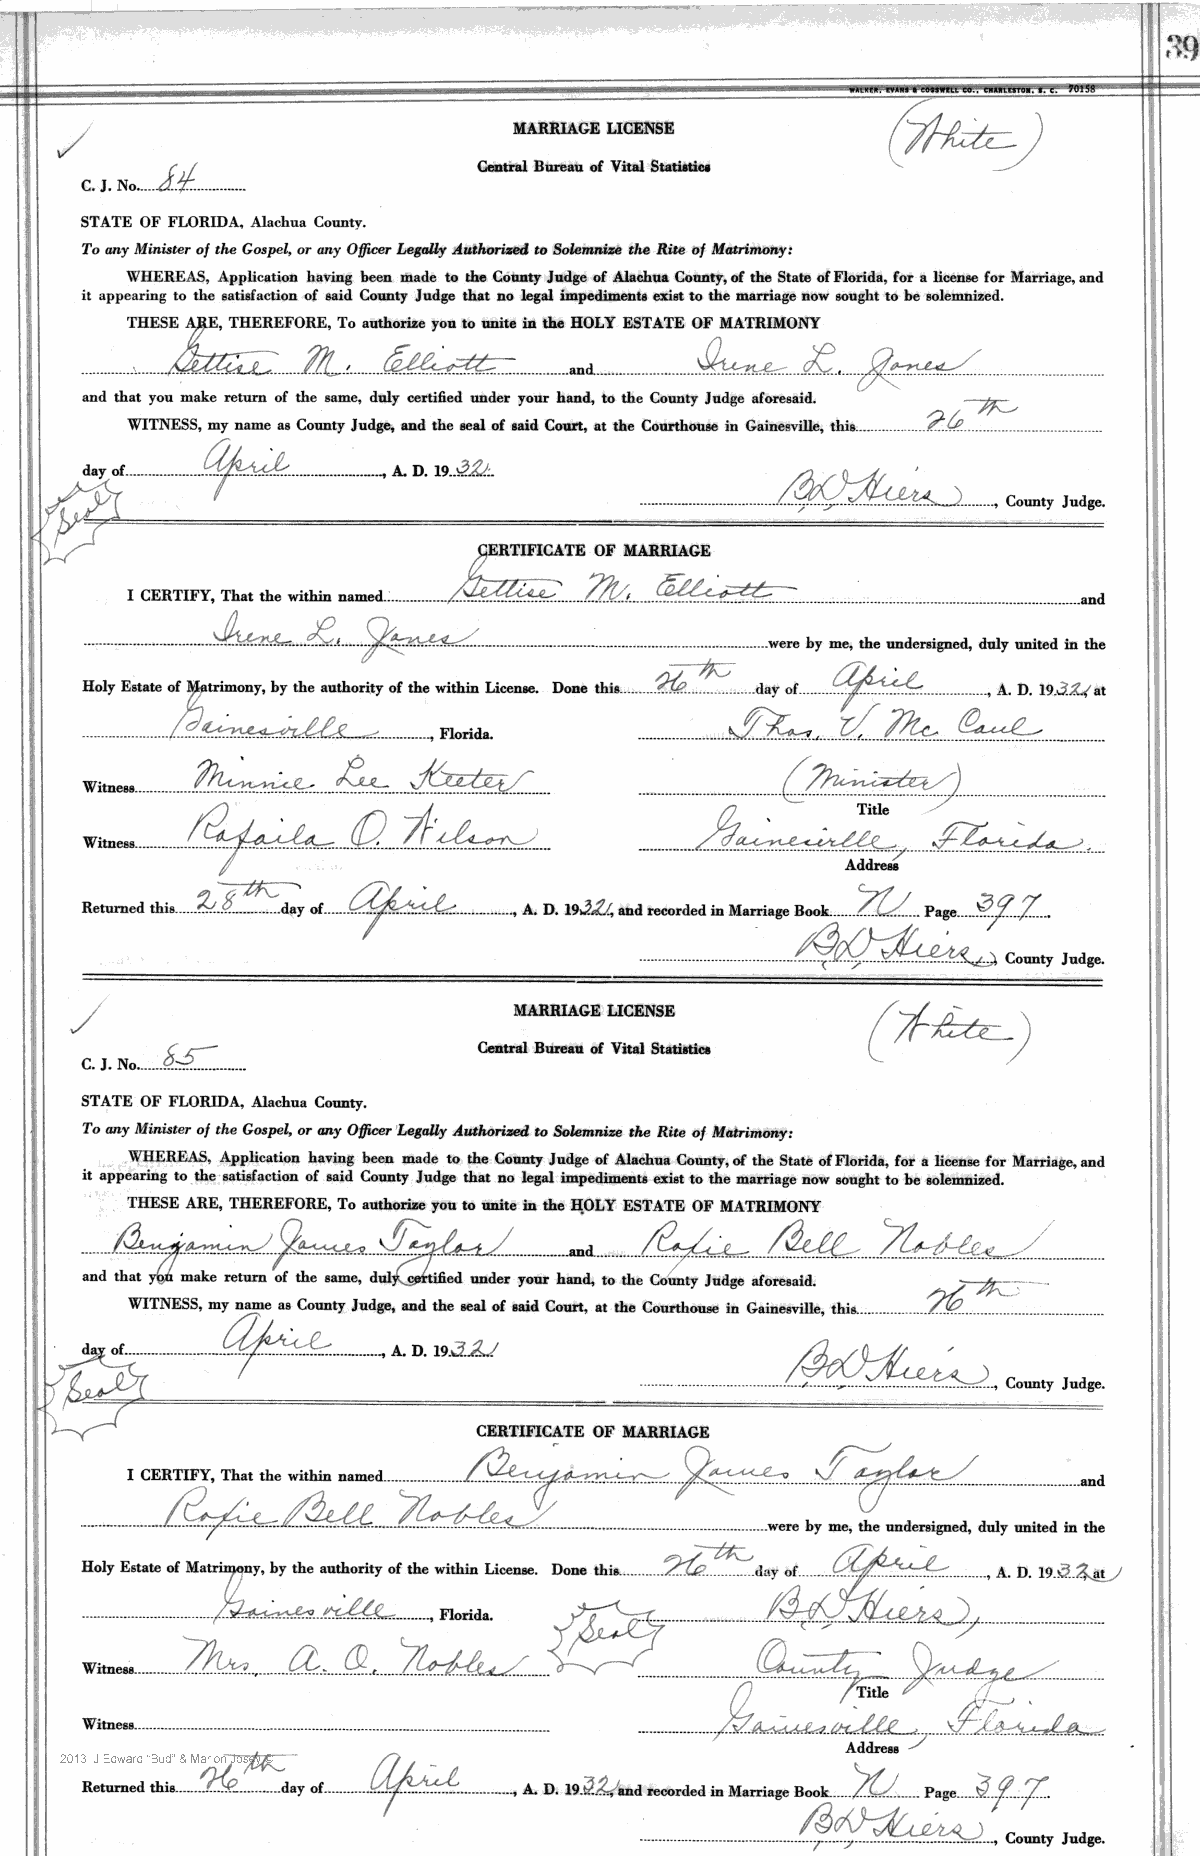 39
WALKER, EVANS & COGSWELL CO., CHARLESTON, S. C. 70158
MARRIAGE LICENSE
(White)
Central Bureau of Vital Statistics
C. J. No. 84
STATE OF FLORIDA, Alachua County.
To any Minister of the Gospel, or any Officer Legally Authorized to Solemnize the Rite of Matrimony:
WHEREAS, Application having been made to the County Judge of Alachua County, of the State of Florida, for a license for Marriage, and
it appearing to the satisfaction of said County Judge that no legal impediments exist to the marriage now sought to be solemnized.
THESE ARE, THEREFORE, To authorize you to unite in the HOLY ESTATE OF MATRIMONY
Gettise M. Elliott and Irene L. Jones
and that you make return of the same, duly certified under your hand, to the County Judge aforesaid.
WITNESS, my name as County Judge, and the seal of said Court, at the Courthouse in Gainesville, this 26th
day of April, A. D. 1932
B.D. Hiers, County Judge.
Seal
CERTIFICATE OF MARRIAGE
I CERTIFY, That the within named Gettise M. Elliott and
Irene L. Jones were by me, the undersigned, duly united in the
Holy Estate of Matrimony, by the authority of the within License. Done this 26th day of April, A. D. 1932, at
Gainesville, Florida. Thos. V. Mc Caul
Witness Minnie Lee Keeter (Minister)
Title
Witness Rafaila O. Wilson Gainesville, Florida.
Address
Returned this 28th day of April, A. D. 1932, and recorded in Marriage Book N Page 397.
B.D. Hiers, County Judge.
MARRIAGE LICENSE
(White)
Central Bureau of Vital Statistics
C. J. No. 85
STATE OF FLORIDA, Alachua County.
To any Minister of the Gospel, or any Officer Legally Authorized to Solemnize the Rite of Matrimony:
WHEREAS, Application having been made to the County Judge of Alachua County, of the State of Florida, for a license for Marriage, and
it appearing to the satisfaction of said County Judge that no legal impediments exist to the marriage now sought to be solemnized.
THESE ARE, THEREFORE, To authorize you to unite in the HOLY ESTATE OF MATRIMONY
Benjamin James Taylor and Rofie Bell Nobles
and that you make return of the same, duly certified under your hand, to the County Judge aforesaid.
WITNESS, my name as County Judge, and the seal of said Court, at the Courthouse in Gainesville, this 26th
day of April, A. D. 1932
B.D. Hiers, County Judge.
Seal
CERTIFICATE OF MARRIAGE
I CERTIFY, That the within named Benjamin James Taylor and
Rofie Bell Nobles were by me, the undersigned, duly united in the
Holy Estate of Matrimony, by the authority of the within License. Done this 26th day of April, A. D. 1932, at
Gainesville, Florida. Seal B.D. Hiers,
Witness Mrs. A. O. Nobles County Judge
Title
Witness Gainesville, Florida
Address
2013 J Edward "Bud" & Marion Josey
Returned this 26th day of April, A. D. 1932, and recorded in Marriage Book N Page 397.
B.D. Hiers, County Judge.